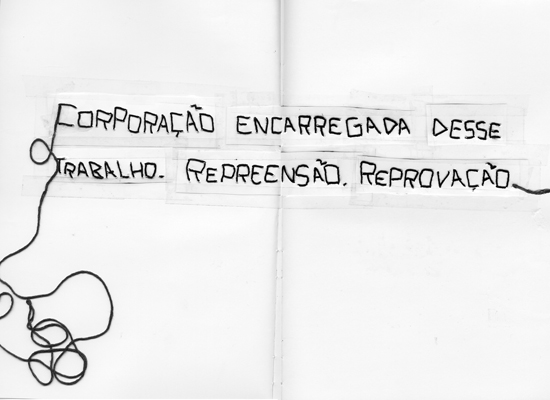 CORPORAÇÃO ENCARREGADA DESSE
TRABALHO. REPREENSÃO. REPROVAÇÃO